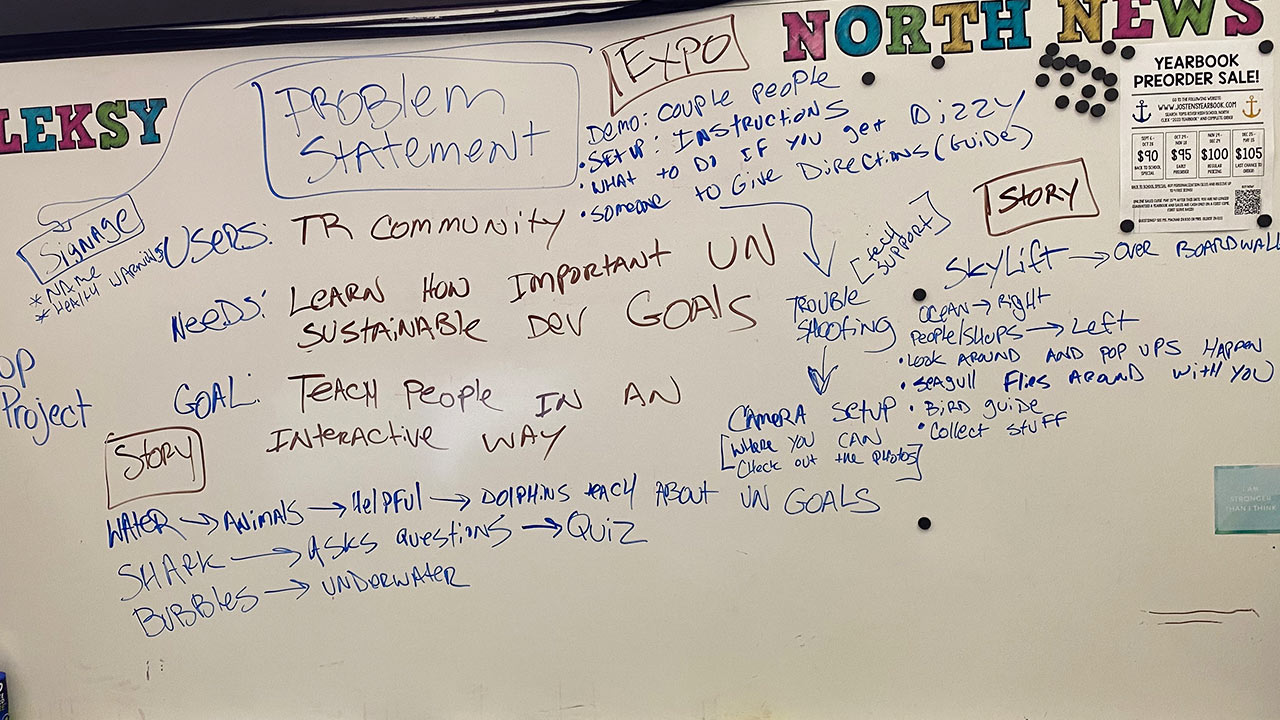 LEKSY
NORTH NEWS
PROBLEM
STATEMENT
EXPO
DEMO: COUPLE PEOPLE
• SETUP: INSTRUCTIONS
• WHAT TO DO IF YOU get DIZZY
• SOMEONE to GIVE DIRECTIONS (GUIDE)
Signage
* NAME
* HEALTH WARNINGS
USERS: TR COMMUNITY
NEEDS: LEARN HOW IMPORTANT UN
SUSTAINABLE DEV GOALS
GOAL: TEACH PEOPLE IN AN
INTERACTIVE WAY
UP
Project
STORY
WATER → ANIMALS → HELPFUL → DOLPHINS TEACH ABOUT UN GOALS
SHARK → ASKS QUESTIONS → QUIZ
BUBBLES → UNDERWATER
[tech
SUPPORT]
TROUBLE
SHOOTING
CAMERA SETUP
[WHERE YOU CAN
Check out the PHOTOS]
STORY
SKYLIFT → OVER BOARDWALK
OCEAN → Right
PEOPLE/SHOPS → Left
• LOOK AROUND AND POP UPS HAPPEN
• SEAGULL Flies AROUND WITH YOU
• BIRD guide
• Collect STUFF
YEARBOOK
PREORDER SALE!
GO TO THE FOLLOWING WEBSITE:
WWW.JOSTENSYEARBOOK.COM
SEARCH: TOMS RIVER HIGH SCHOOL NORTH
$90
BACK TO SCHOOL
SPECIAL
$95
EARLY
PREORDER
$100
REGULAR
PRICING
$105
LAST CHANCE TO
ORDER!
I AM
STRONGER
THAN I THINK